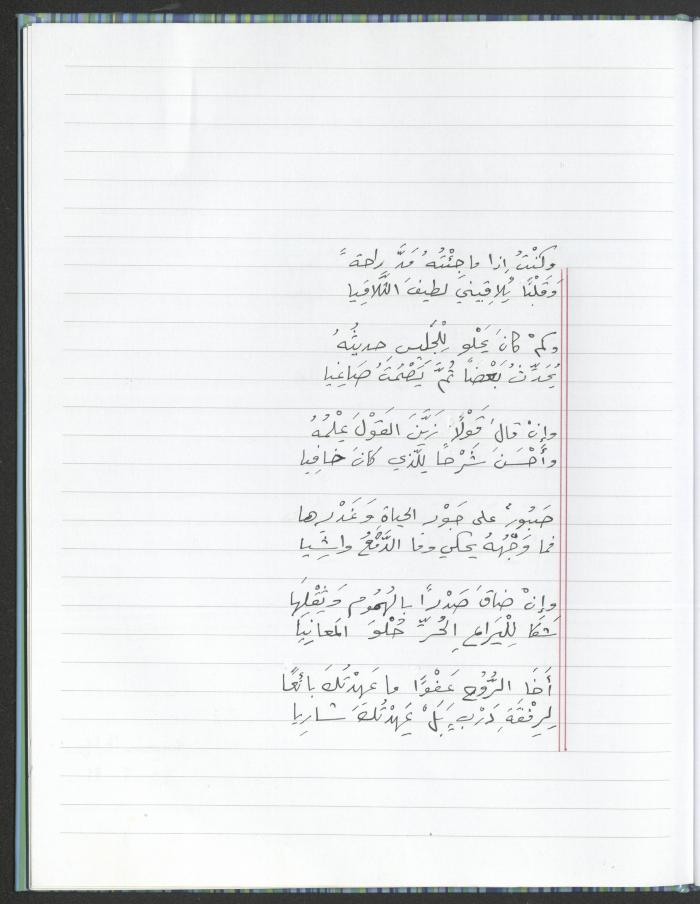 وكُنْتُ إذا ما جِئْتُهُ مَدَّ راحةً
وَقَلْبًا يُلاقِيني لطيفَ التَّلاقِيا
وكمْ كانَ يَحْلو لِلْجَليسِ حديثُهُ
يُحَدِّثُ بَعْضاً ثُمَّ يَصْمُتُ صَاغِيا
وإنْ قالَ قَوْلًا زَيَّنَ القَوْلَ عِلْمُهُ
وأَحْسَنَ شَرْحًا للَّذي كانَ خافِيا
صَبُورٌ على جَوْرِ الحياةِ وَغَدْرِها
فما وَجْهُهُ يحكي وما الدَّمْعُ واشِيا
وإنْ ضاقَ صَدْرًا بالهُمُومِ وَثِقْلِها
شَكَا لِلْيَراعِ الحُرِّ حُلْوَ المَعانِيَا
أَخَا الرُّوحِ عَفْوًا ما عَهِدْتُكَ بائعًا
لِرِفْقَةِ دَرْبٍ بَلْ عَهِدْتُكَ شارِيا